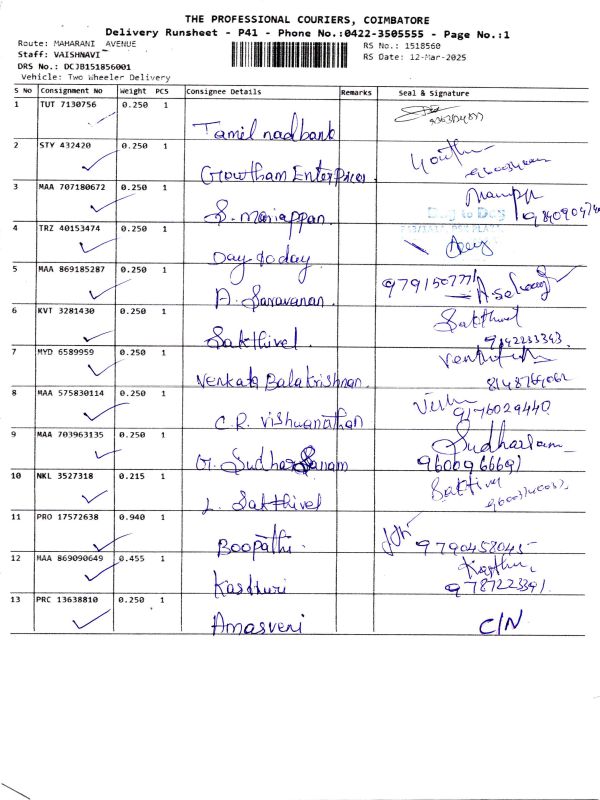 THE PROFESSIONAL COURIERS, COIMBATORE
Delivery Runsheet - P41 - Phone No.:0422-3505555 - Page No.:1
Route: MAHARANI AVENUE
RS No.: 1518560
Staff: VAISHNAVI
RS Date: 12-Mar-2025
DRS No.: DCJB151856001
Vehicle: Two Wheeler Delivery
S No Consignment No Weight PCS Consignee Details Remarks Seal & Signature
1 TUT 7130756 0.250 1
Tamil nad bank
2 STY 432420 0.250 1
Gowtham Enterprices
3 MAA 707180672 0.250 1
S. mariappan
Day to Day
4 TRZ 40153474 0.250 1
Day to day
5 MAA 869185287 0.250 1
9791507771
A. Saravanan
6 KVT 3281430 0.250 1
Sakthivel
Sakthivel
7 MYD 6589959 0.250 1
Venkata Balakrishnan
8 MAA 575830114 0.250 1
9176029440
C.R. Vishwanathan
9 MAA 703963135 0.250 1
Sudharsan
G. Sudharsanam
9600966691
10 NKL 3527318 0.215 1
L. Sakthivel
11 PRO 17572638 0.940 1
Boopathi
9790458045
12 MAA 869090649 0.455 1
Kasthuri
9787223391
13 PRC 13638810 0.250 1
Amasveni C/N